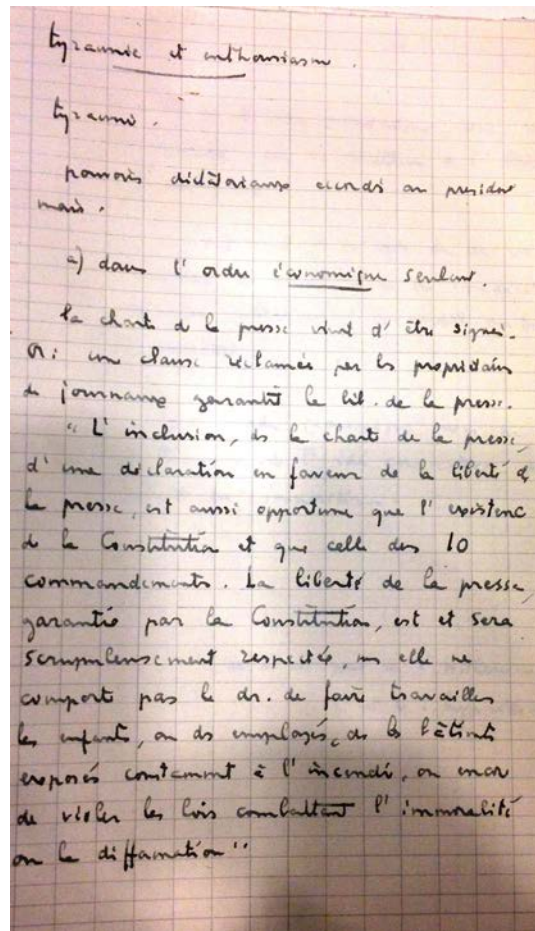 tyrannie et enthousiasme.
tyrannie.
pouvoirs dictatoriaux accordés au président
mais.
a) dans l'ordre économique seulement.
La charte de la presse vient d'être signée.
Or : une clause réclamée par les propriétaires
de journaux garantit la lib. de la presse.
"L'inclusion, ds la charte de la presse,
d'une déclaration en faveur de la liberté de
la presse, est aussi opportune que l'existence
de la Constitution et que celle des 10
commandements. La liberté de la presse,
garantie par la Constitution, est et sera
scrupuleusement respectée, ms elle ne
comporte pas le dr. de faire travailler
les enfants, ou des employés, ds les bâtiments
exposés constamment à l'incendie, ou encore
de violer les lois combattant l'immoralité
ou la diffamation"